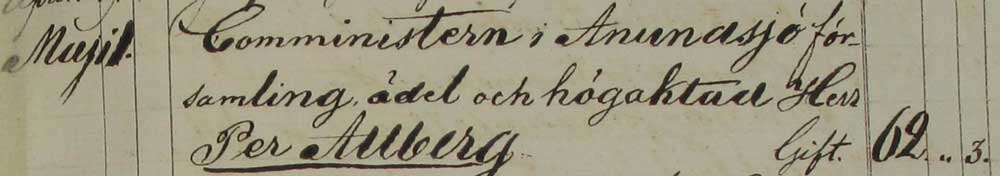 Comministern i Anundsjö för-
samling, ädel och högaktad Herr
Per Allberg Gift. 62 .. 3.